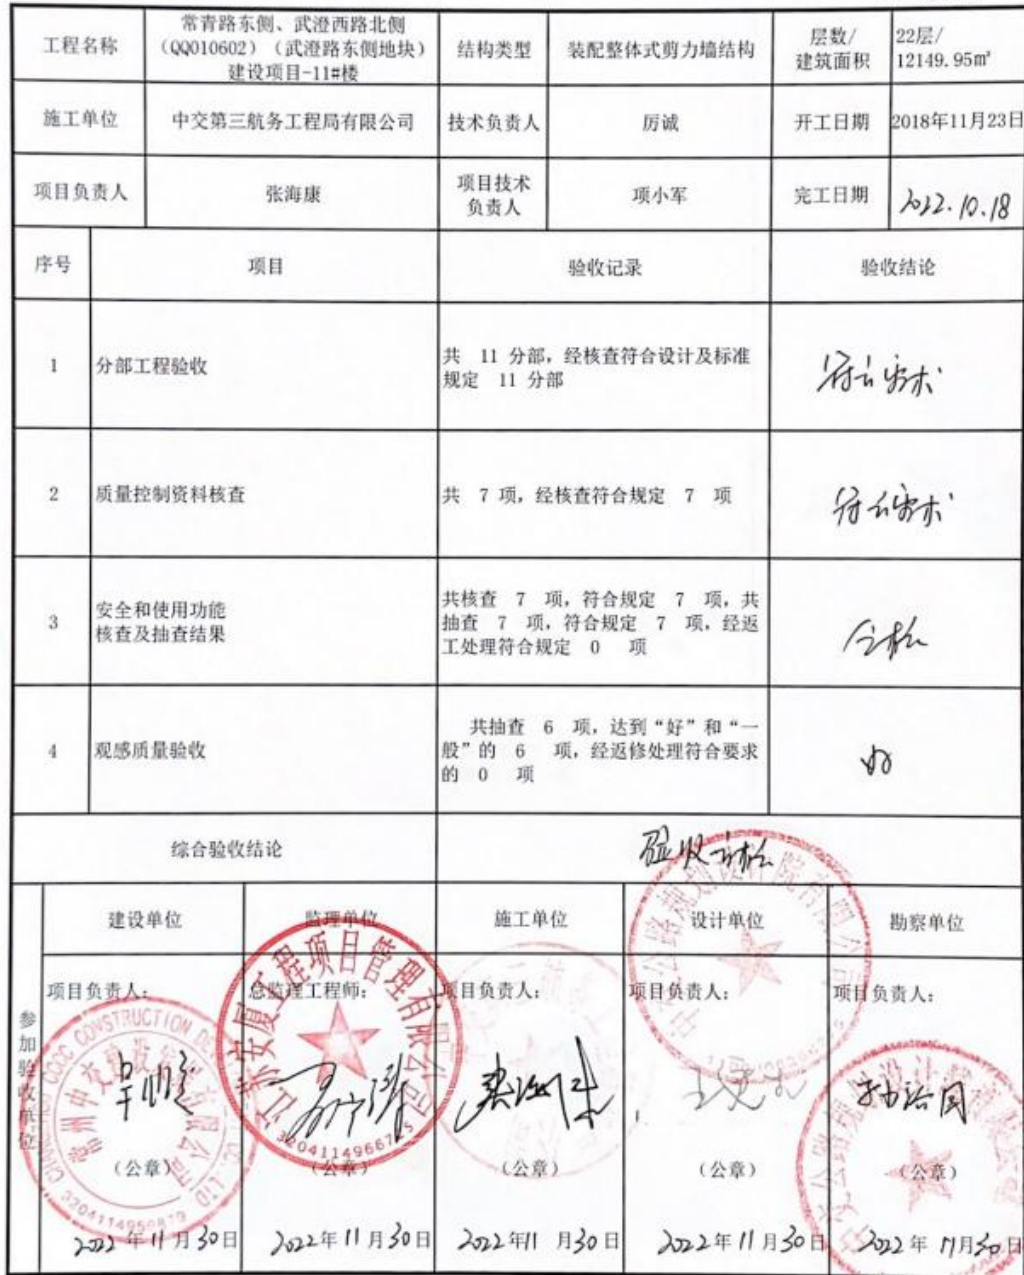 工程名称
常青路东侧、武澄西路北侧
（QQ010602）（武澄路东侧地块）
建设项目-11#楼
结构类型
装配整体式剪力墙结构
层数/
建筑面积
22层/
12149.95㎡
施工单位
中交第三航务工程局有限公司
技术负责人
厉诚
开工日期
2018年11月23日
项目负责人
张海康
项目技术
负责人
项小军
完工日期
2022.10.18
序号
项目
验收记录
验收结论
1
分部工程验收
共 11 分部，经核查符合设计及标准
规定 11 分部
符合要求
2
质量控制资料核查
共 7 项，经核查符合规定 7 项
符合要求
3
安全和使用功能
核查及抽查结果
共核查 7 项，符合规定 7 项，共
抽查 7 项，符合规定 7 项，经返
工处理符合规定 0 项
合格
4
观感质量验收
共抽查 6 项，达到“好”和“一
般”的 6 项，经返修处理符合要求
的 0 项
好
综合验收结论
验收合格
参加验收单位
建设单位
监理单位
施工单位
设计单位
勘察单位
项目负责人：
总监理工程师：
项目负责人：
项目负责人：
项目负责人：
江苏安厦工程项目管理有限公司
张海康
（公章）
（公章）
（公章）
（公章）
（公章）
2022年11月30日
2022年11月30日
2022年11月30日
2022年11月30日
2022年11月30日